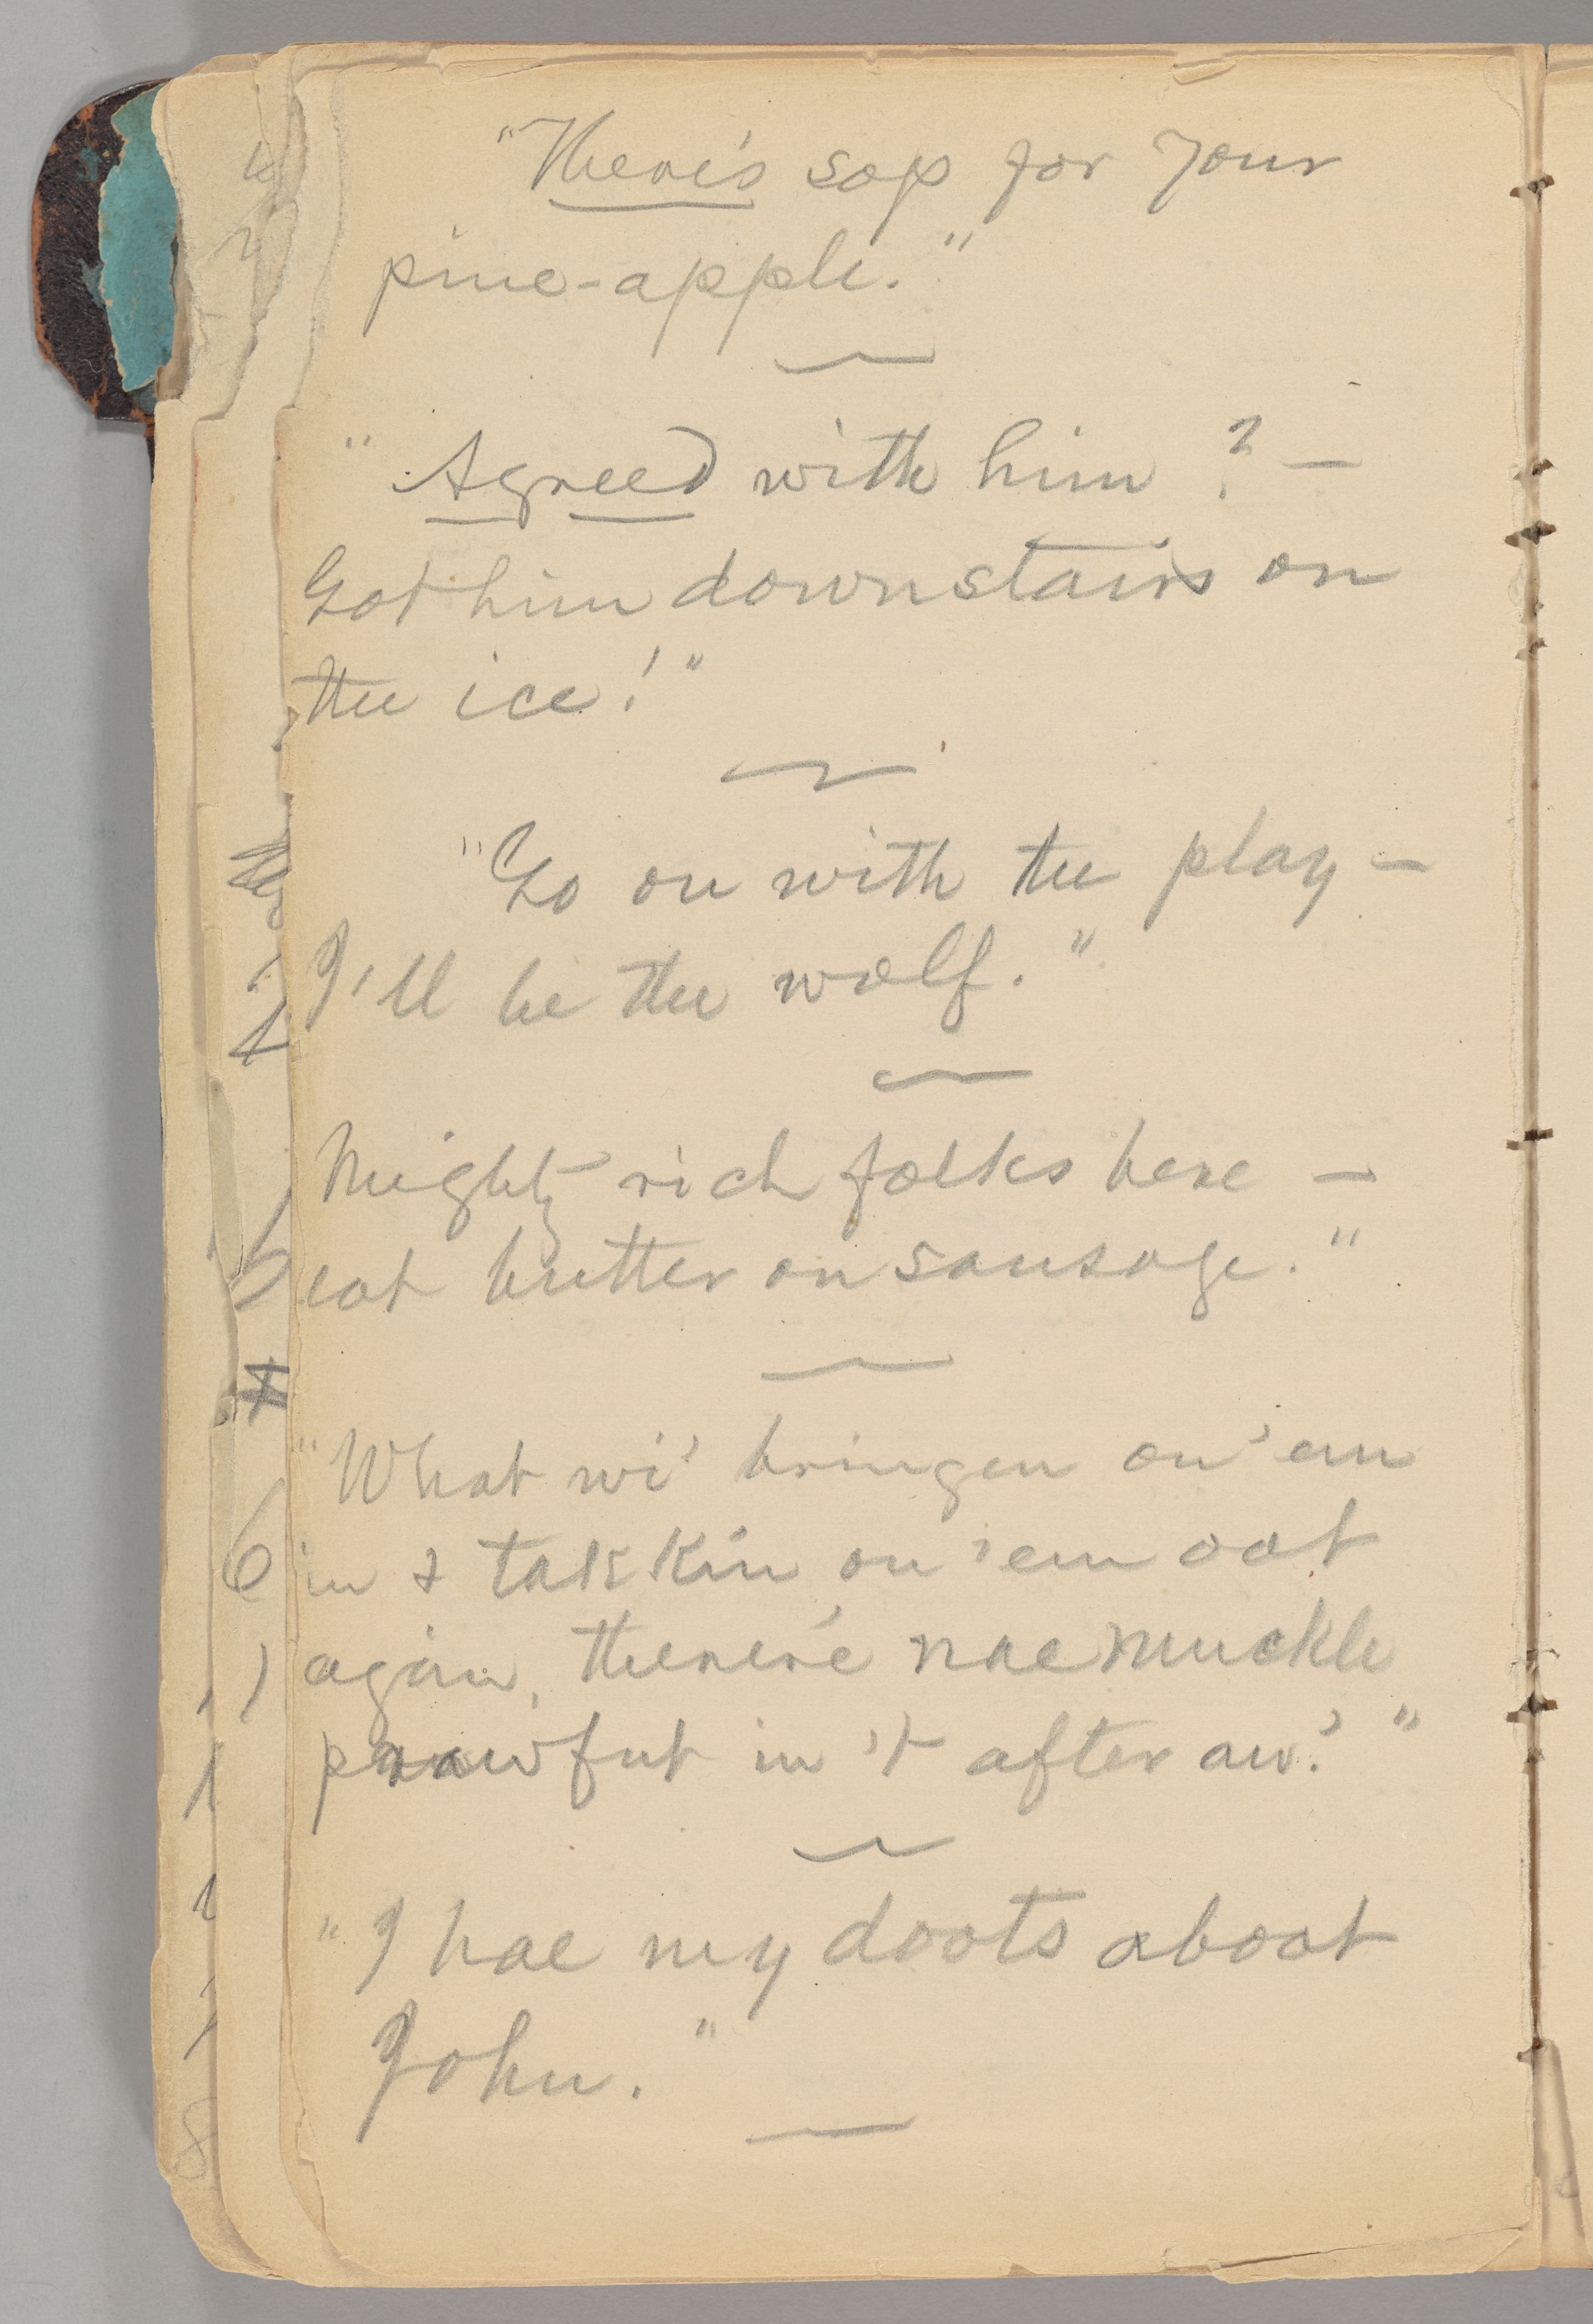 "There's sop for your
pine-apple."
"Agreed with him? —
Got him downstairs on
the ice!"
"Go on with the play —
I'll be the wolf."
Mighty rich folks here —
eat butter on sausage."
"What wi' bringen on 'em
in & takkin on 'em oot
again, there's nae muckle
prawfut in 't after aw'."
"I hae my doots aboot
John."